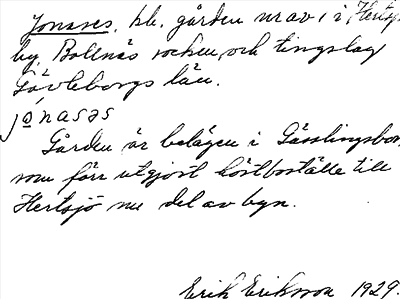 Jonases, bb. gården nr av 1 i Hertsjö
by, Bollnäs socken och tingslag
Gävleborgs län.
jo̲nasäs
Gården är belägen i Gässlingsbo,
som förr utgjort höstboställe till
Hertsjö nu del av byn.
Erik Eriksson 1929.